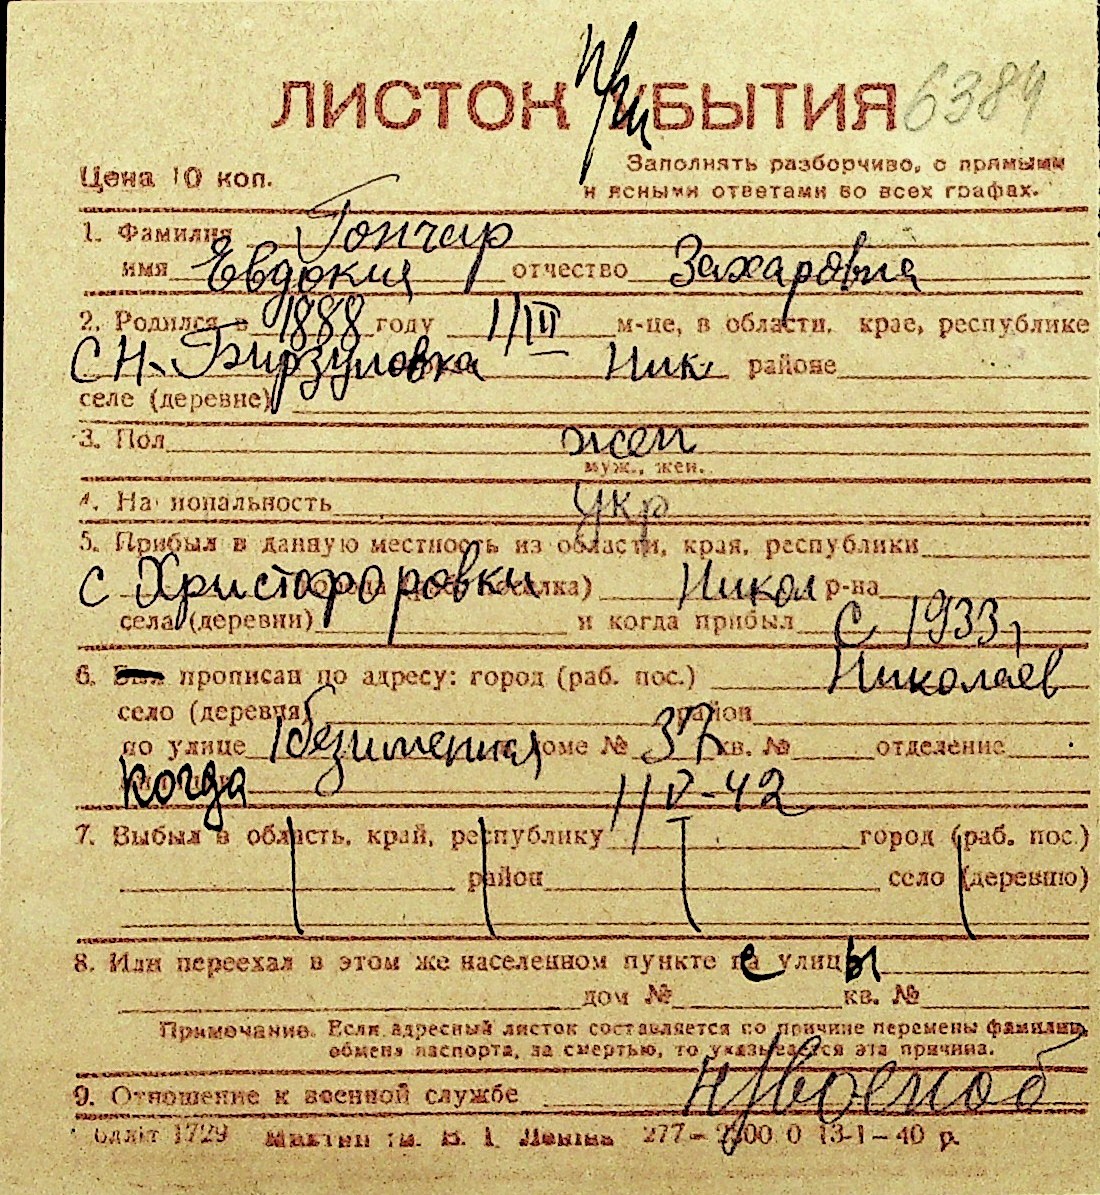 ЛИСТОК ПРИБЫТИЯ 6384
Цена 10 коп.
Заполнять разборчиво, с прямыми
и ясными ответами во всех графах.
1. Фамилия Гончар
имя Евдокия отчество Захаровна
2. Родился в 1888 году 1/III м-це, в области, крае, республике
с Н. Бирзуловка Ник районе
селе (деревне)
3. Пол жен
муж., жен.
4. Национальность укр
5. Прибыл в данную местность из области, края, республики
с Христофоровки Никол р-на
села (деревни) и когда прибыл с 1933,
6. Был прописан по адресу: город (раб. пос.) Николаев
село (деревня) район
по улице 1 безименная доме № 37 кв. № отделение
когда 1/V-42
7. Выбыл в область, край, республику город (раб. пос.)
район село (деревню)
8. Или переехал в этом же населенном пункте с улицы
дом № кв. №
Примечание. Если адресный листок составляется по причине перемены фамилии,
обмена паспорта, за смертью, то указывается эта причина.
9. Отношение к военной службе н/военоб
1729 им. В. І. Леніна 277—2500 0 13-1—40 р.